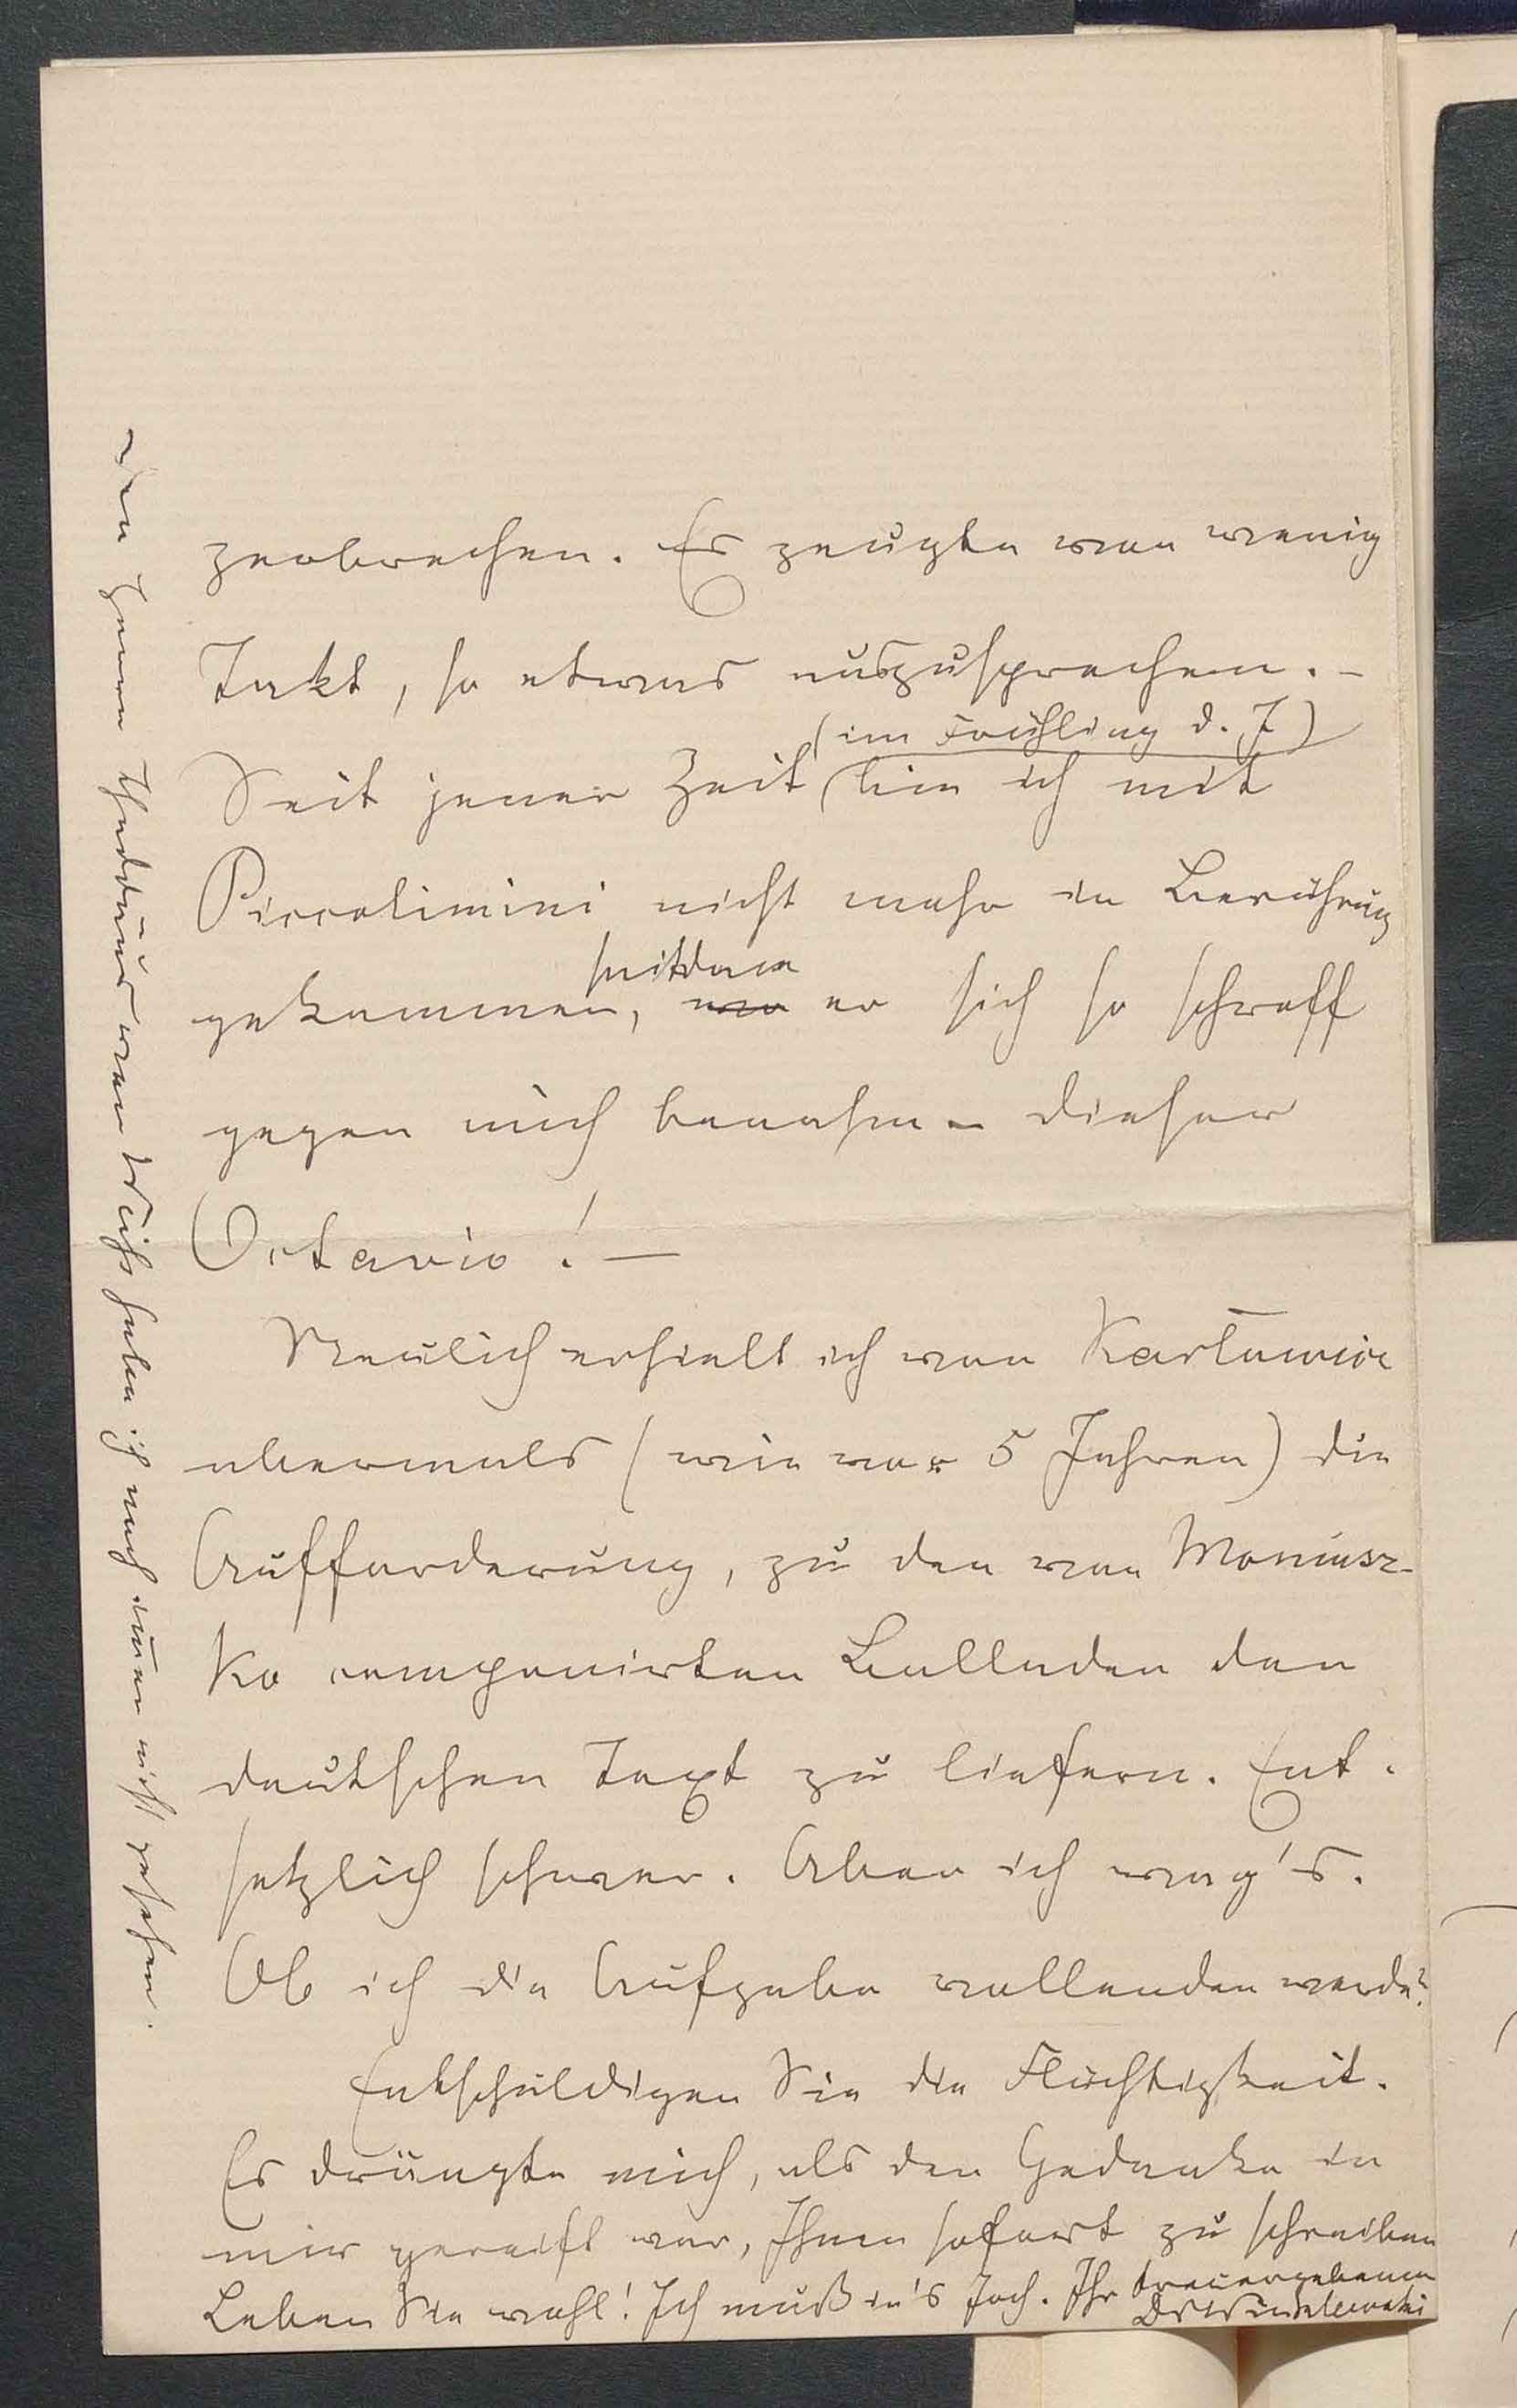 zerbrechen. Es zeugte von wenig
Takt, so etwas auszusprechen. –
(im Frühling d. J)
Seit jener Zeit bin ich mit
Piccolimini nicht mehr in Berührung
seitdem
gekommen, wo er sich so schroff
gegen mich benahm – dieser
Octavio! –
Neulich erhielt ich von Karłowicz
abermals (wie vor 5 Jahren) die
Aufforderung, zu den von Moniusz-
ko componirten Balladen den
deutschen Text zu liefern. Ent-
setzlich schwer. Aber ich wag's.
Ob ich die Aufgabe vollenden werde?
Entschuldigen Sie die Flüchtigkeit.
Es drängte mich, als der Gedanke in
mir gereift war, Ihnen sofort zu schreiben
Leben Sie wohl! Ich muß in's Joch. Ihr treuergebener
Dr Winklewski
Den Herrn Thaddäus von habe ich noch immer nicht gesehen.